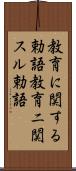 教育に関する
勅語教育ニ関
スル勅語